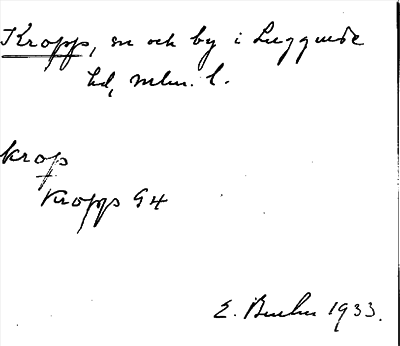 Kropp, sn och by i Luggude
hd, mlm. l.
krop
Kropps G4
E. 1933.